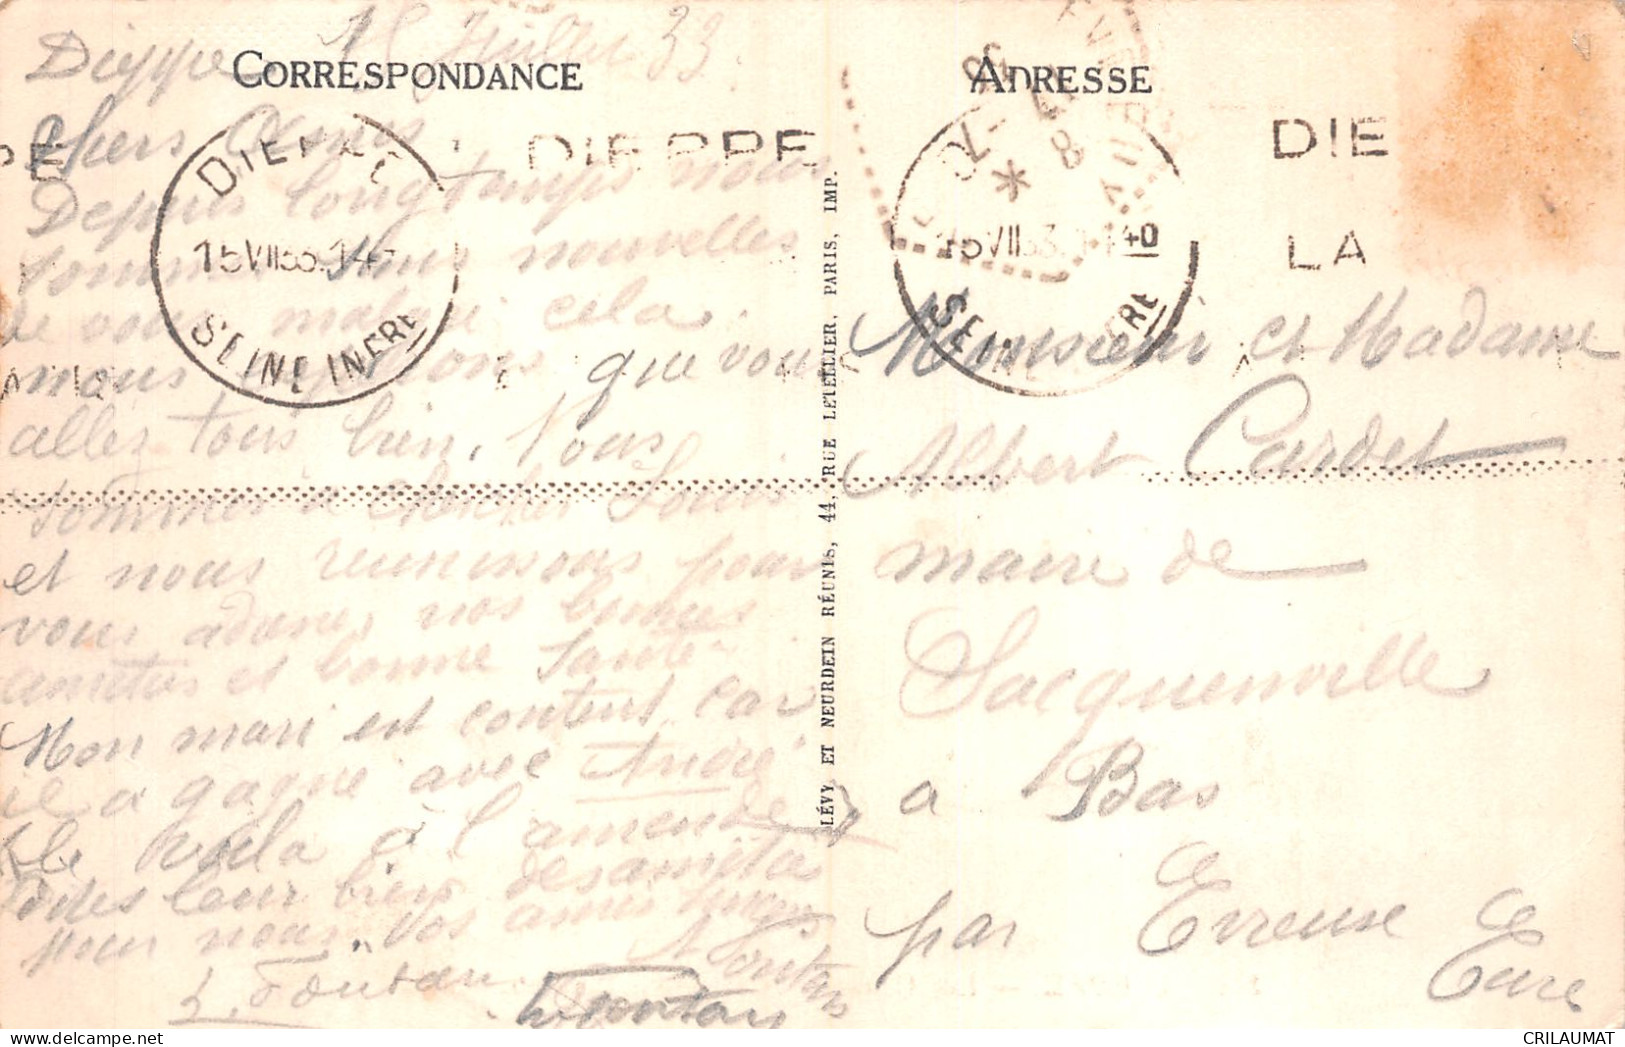 CORRESPONDANCE
Dieppe 15 Juillet 33.
Chers Amis
Depuis longtemps nous
sommes sans nouvelles
de vous malgré cela
nous espérons que vous
allez tous bien. Nous
sommes à
et nous réunissons pour
vous nos bonnes
amitiés et bonne santé
Mon mari est content car
il a gagné avec André
le à l'amende
leur bien des amitiés
pour nous. Vos amis
Fontan
DIEPPE
15 VII 33
SEINE INFRE
DIEPPE
LÉVY ET NEURDEIN RÉUNIS, 44, RUE LETELLIER, PARIS, IMP.
ADRESSE
15 VII 33 40
SEINE INFRE
DIE
LA
Monsieur et Madame
Albert Cardet
maire de
Sacquenville
a Bas
par Evreuse
Eure
CRILAUMAT